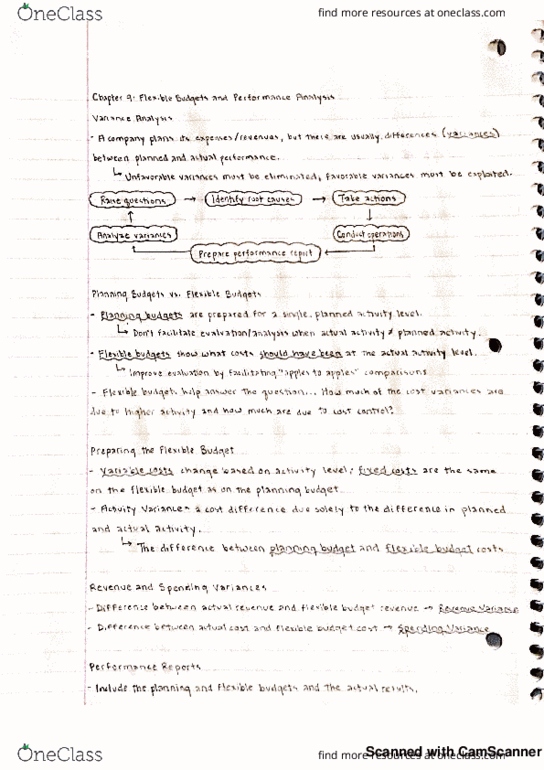 OneClass
find more resources at oneclass.com
Chapter 9: Flexible Budgets and Performance Analysis
Variance Analysis
- A company plans its expenses/revenues, but there are usually differences (variances)
between planned and actual performance.
↳ Unfavorable variances must be eliminated, favorable variances must be exploited.
Raise questions → Identify root causes → Take actions
↑ ↓
Analyze variances Conduct operations
Prepare performance report
Planning Budgets vs. Flexible Budgets
- Planning budgets are prepared for a single, planned activity level.
↳ Don't facilitate evaluation/analysis when actual activity ≠ planned activity.
- Flexible budgets show what costs should have been at the actual activity level.
↳ Improve evaluation by facilitating "apples to apples" comparisons
- Flexible budgets help answer the question... How much of the cost variances are
due to higher activity and how much are due to cost control?
Preparing the Flexible Budget
- Variable costs change based on activity level; fixed costs are the same
on the flexible budget as on the planning budget
- Activity Variance = a cost difference due solely to the difference in planned
and actual activity.
↳ The difference between planning budget and flexible budget costs
Revenue and Spending Variances
- Difference between actual revenue and flexible budget revenue → Revenue Variance
- Difference between actual cost and flexible budget cost → Spending Variance
Performance Reports
- Include the planning and flexible budgets and the actual results.
OneClass
find more resources at oneclass.com
Scanned with CamScanner